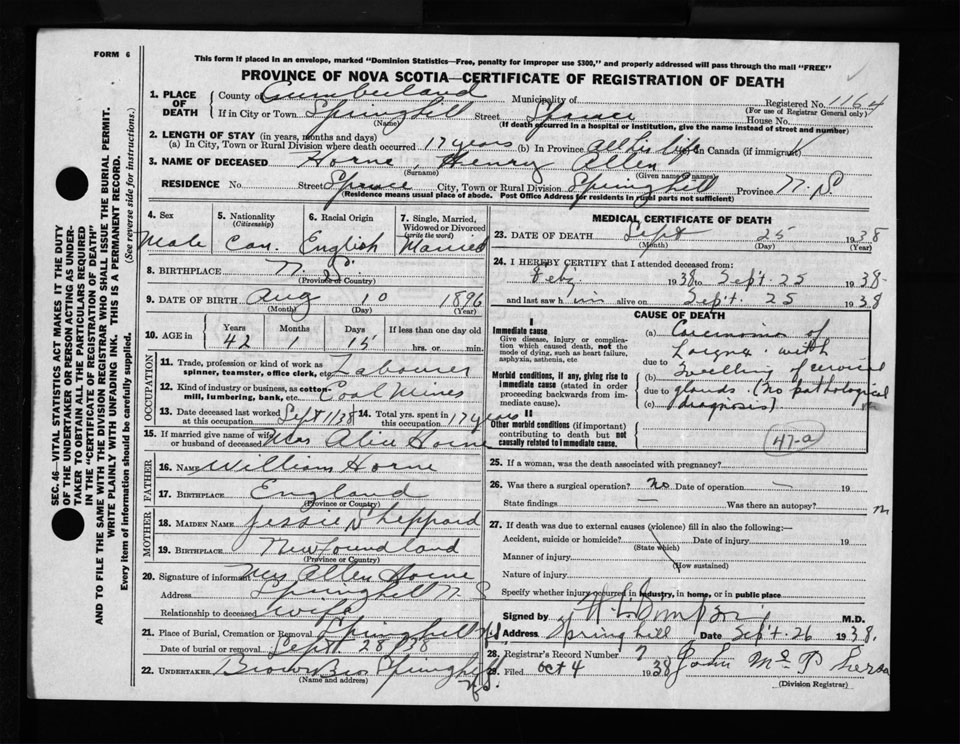 FORM 6
This form if placed in an envelope, marked "Dominion Statistics—Free, penalty for improper use $300," and properly addressed will pass through the mail "FREE"
PROVINCE OF NOVA SCOTIA—CERTIFICATE OF REGISTRATION OF DEATH
1. PLACE OF DEATH
County of Cumberland Municipality of Registered No. 1164
(For use of Registrar General only)
If in City or Town Springhill Street Spruce House No.
(Name) (If death occurred in a hospital or institution, give the name instead of street and number)
2. LENGTH OF STAY (in years, months and days)
(a) In City, Town or Rural Division where death occurred 17 years (b) In Province All his life in Canada (if immigrant)
3. NAME OF DECEASED Horne, Henry Allen
(Surname) (Given names)
RESIDENCE No. Street Spruce City, Town or Rural Division Springhill Province N. S.
(Residence means usual place of abode. Post Office Address for residents in rural parts not sufficient)
4. Sex Male
5. Nationality (Citizenship) Can.
6. Racial Origin English
7. Single, Married, Widowed or Divorced (write the word) Married
8. BIRTHPLACE N. S.
(Province or Country)
9. DATE OF BIRTH Aug 10 1896
(Month) (Day) (Year)
10. AGE in Years 42 Months 1 Days 15 If less than one day old hrs. or min.
OCCUPATION
11. Trade, profession or kind of work as spinner, teamster, office clerk, etc. Labourer
12. Kind of industry or business, as cotton-mill, lumbering, bank, etc. Coal Mines
13. Date deceased last worked at this occupation Sept 1138 14. Total yrs. spent in this occupation 17 years
15. If married give name of wife or husband of deceased Mrs Alice Horne
FATHER
16. NAME William Horne
17. BIRTHPLACE England
(Province or Country)
MOTHER
18. MAIDEN NAME Jessie Sheppard
19. BIRTHPLACE Newfoundland
(Province or Country)
20. Signature of informant Mrs Allen Horne
Address Springhill N S
Relationship to deceased Wife
21. Place of Burial, Cremation or Removal Springhill N.S.
Date of burial or removal Sept. 28/38
22. UNDERTAKER Brown Bros Springhill N.S.
(Name and address)
MEDICAL CERTIFICATE OF DEATH
23. DATE OF DEATH Sept 25 1938
(Month) (Day) (Year)
24. I HEREBY CERTIFY that I attended deceased from:
Feby. 1938 to Sept. 25 1938
and last saw him alive on Sept. 25 1938
CAUSE OF DEATH
I
Immediate cause
Give disease, injury or complication which caused death, not the mode of dying, such as heart failure, asphyxia, asthenia, etc
Morbid conditions, if any, giving rise to immediate cause (stated in order proceeding backwards from immediate cause).
II
Other morbid conditions (if important) contributing to death but not causally related to immediate cause.
(a) Carcinoma of
due to Larynx with
(b) swelling of cervical
due to glands (No pathological
(c) diagnosis)
47-a
25. If a woman, was the death associated with pregnancy?
26. Was there a surgical operation? No Date of operation — 19
State findings — Was there an autopsy?
27. If death was due to external causes (violence) fill in also the following:—
Accident, suicide or homicide? Date of injury 19
(State which)
Manner of injury
(How sustained)
Nature of injury
Specify whether injury occurred in industry, in home, or in public place
Signed by M.D.
Address Springhill Date Sept. 26 1938.
28. Registrar's Record Number 7
29. Filed Oct 4 1938
(Division Registrar)
SEC. 46—VITAL STATISTICS ACT MAKES IT THE DUTY
OF THE UNDERTAKER OR PERSON ACTING AS UNDER-
TAKER TO OBTAIN ALL THE PARTICULARS REQUIRED
IN THE "CERTIFICATE OF REGISTRATION OF DEATH"
AND TO FILE THE SAME WITH THE DIVISION REGISTRAR WHO SHALL ISSUE THE BURIAL PERMIT.
WRITE PLAINLY WITH UNFADING INK. THIS IS A PERMANENT RECORD.
Every item of information should be carefully supplied. (See reverse side for instructions.)